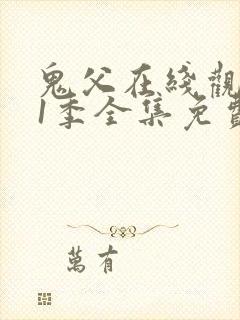 鬼父在綫觀
1季全集免費
萬有